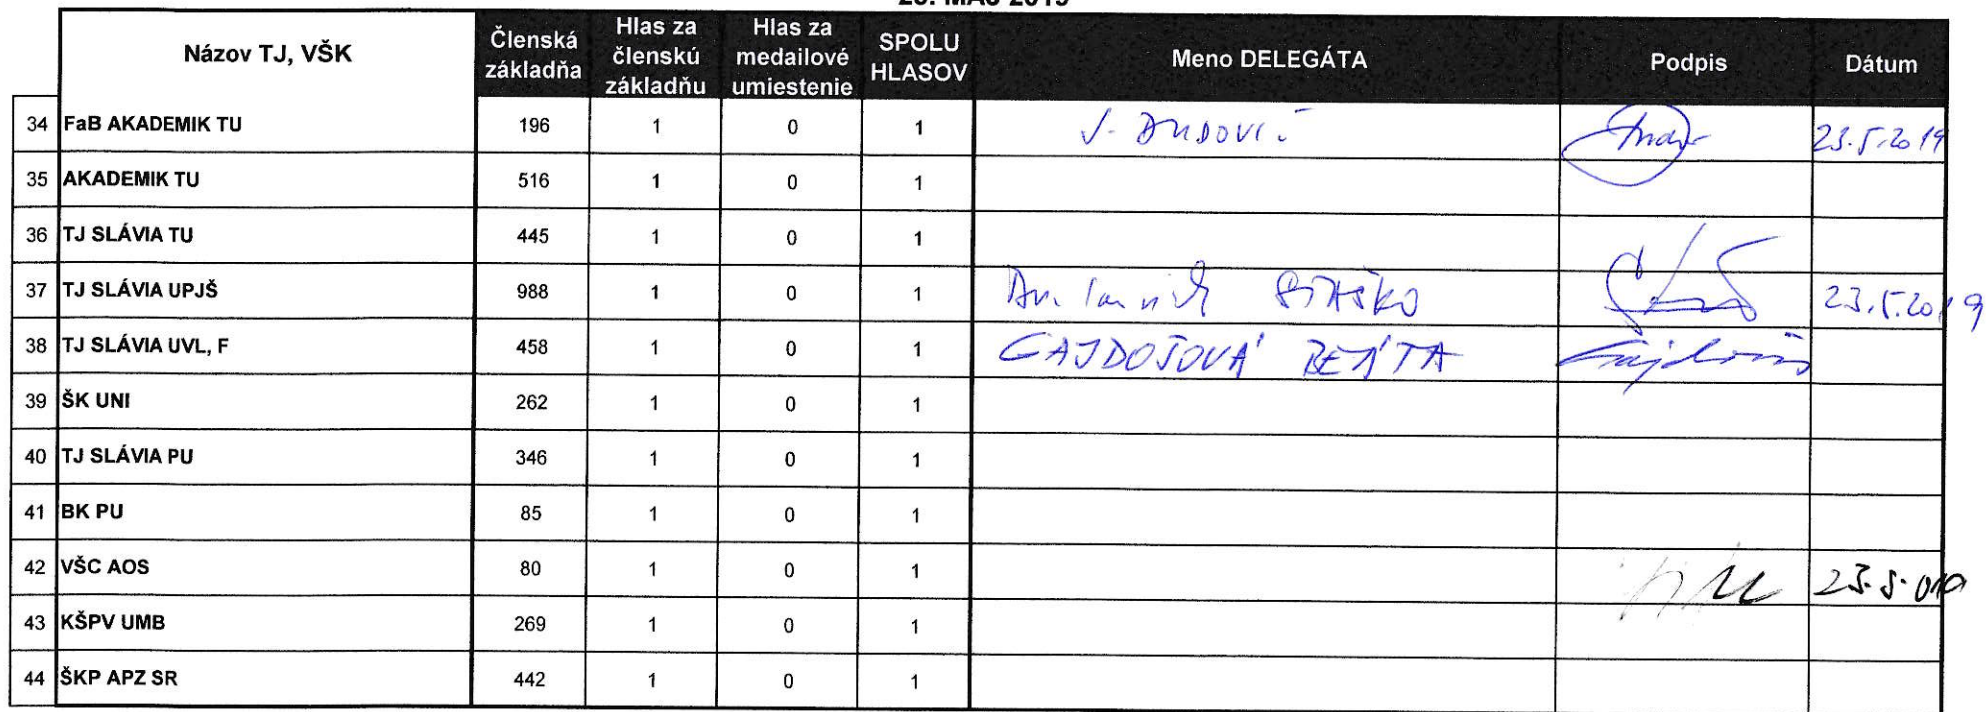 Názov TJ, VŠK Členská základňa Hlas za členskú základňu Hlas za medailové umiestenie SPOLU HLASOV Meno DELEGÁTA Podpis Dátum
34 FaB AKADEMIK TU 196 1 0 1 23.5.2019
35 AKADEMIK TU 516 1 0 1
36 TJ SLÁVIA TU 445 1 0 1
37 TJ SLÁVIA UPJŠ 988 1 0 1 23.5.2019
38 TJ SLÁVIA UVL, F 458 1 0 1 GAJDOŠOVÁ
39 ŠK UNI 262 1 0 1
40 TJ SLÁVIA PU 346 1 0 1
41 BK PU 85 1 0 1
42 VŠC AOS 80 1 0 1
43 KŠPV UMB 269 1 0 1
44 ŠKP APZ SR 442 1 0 1